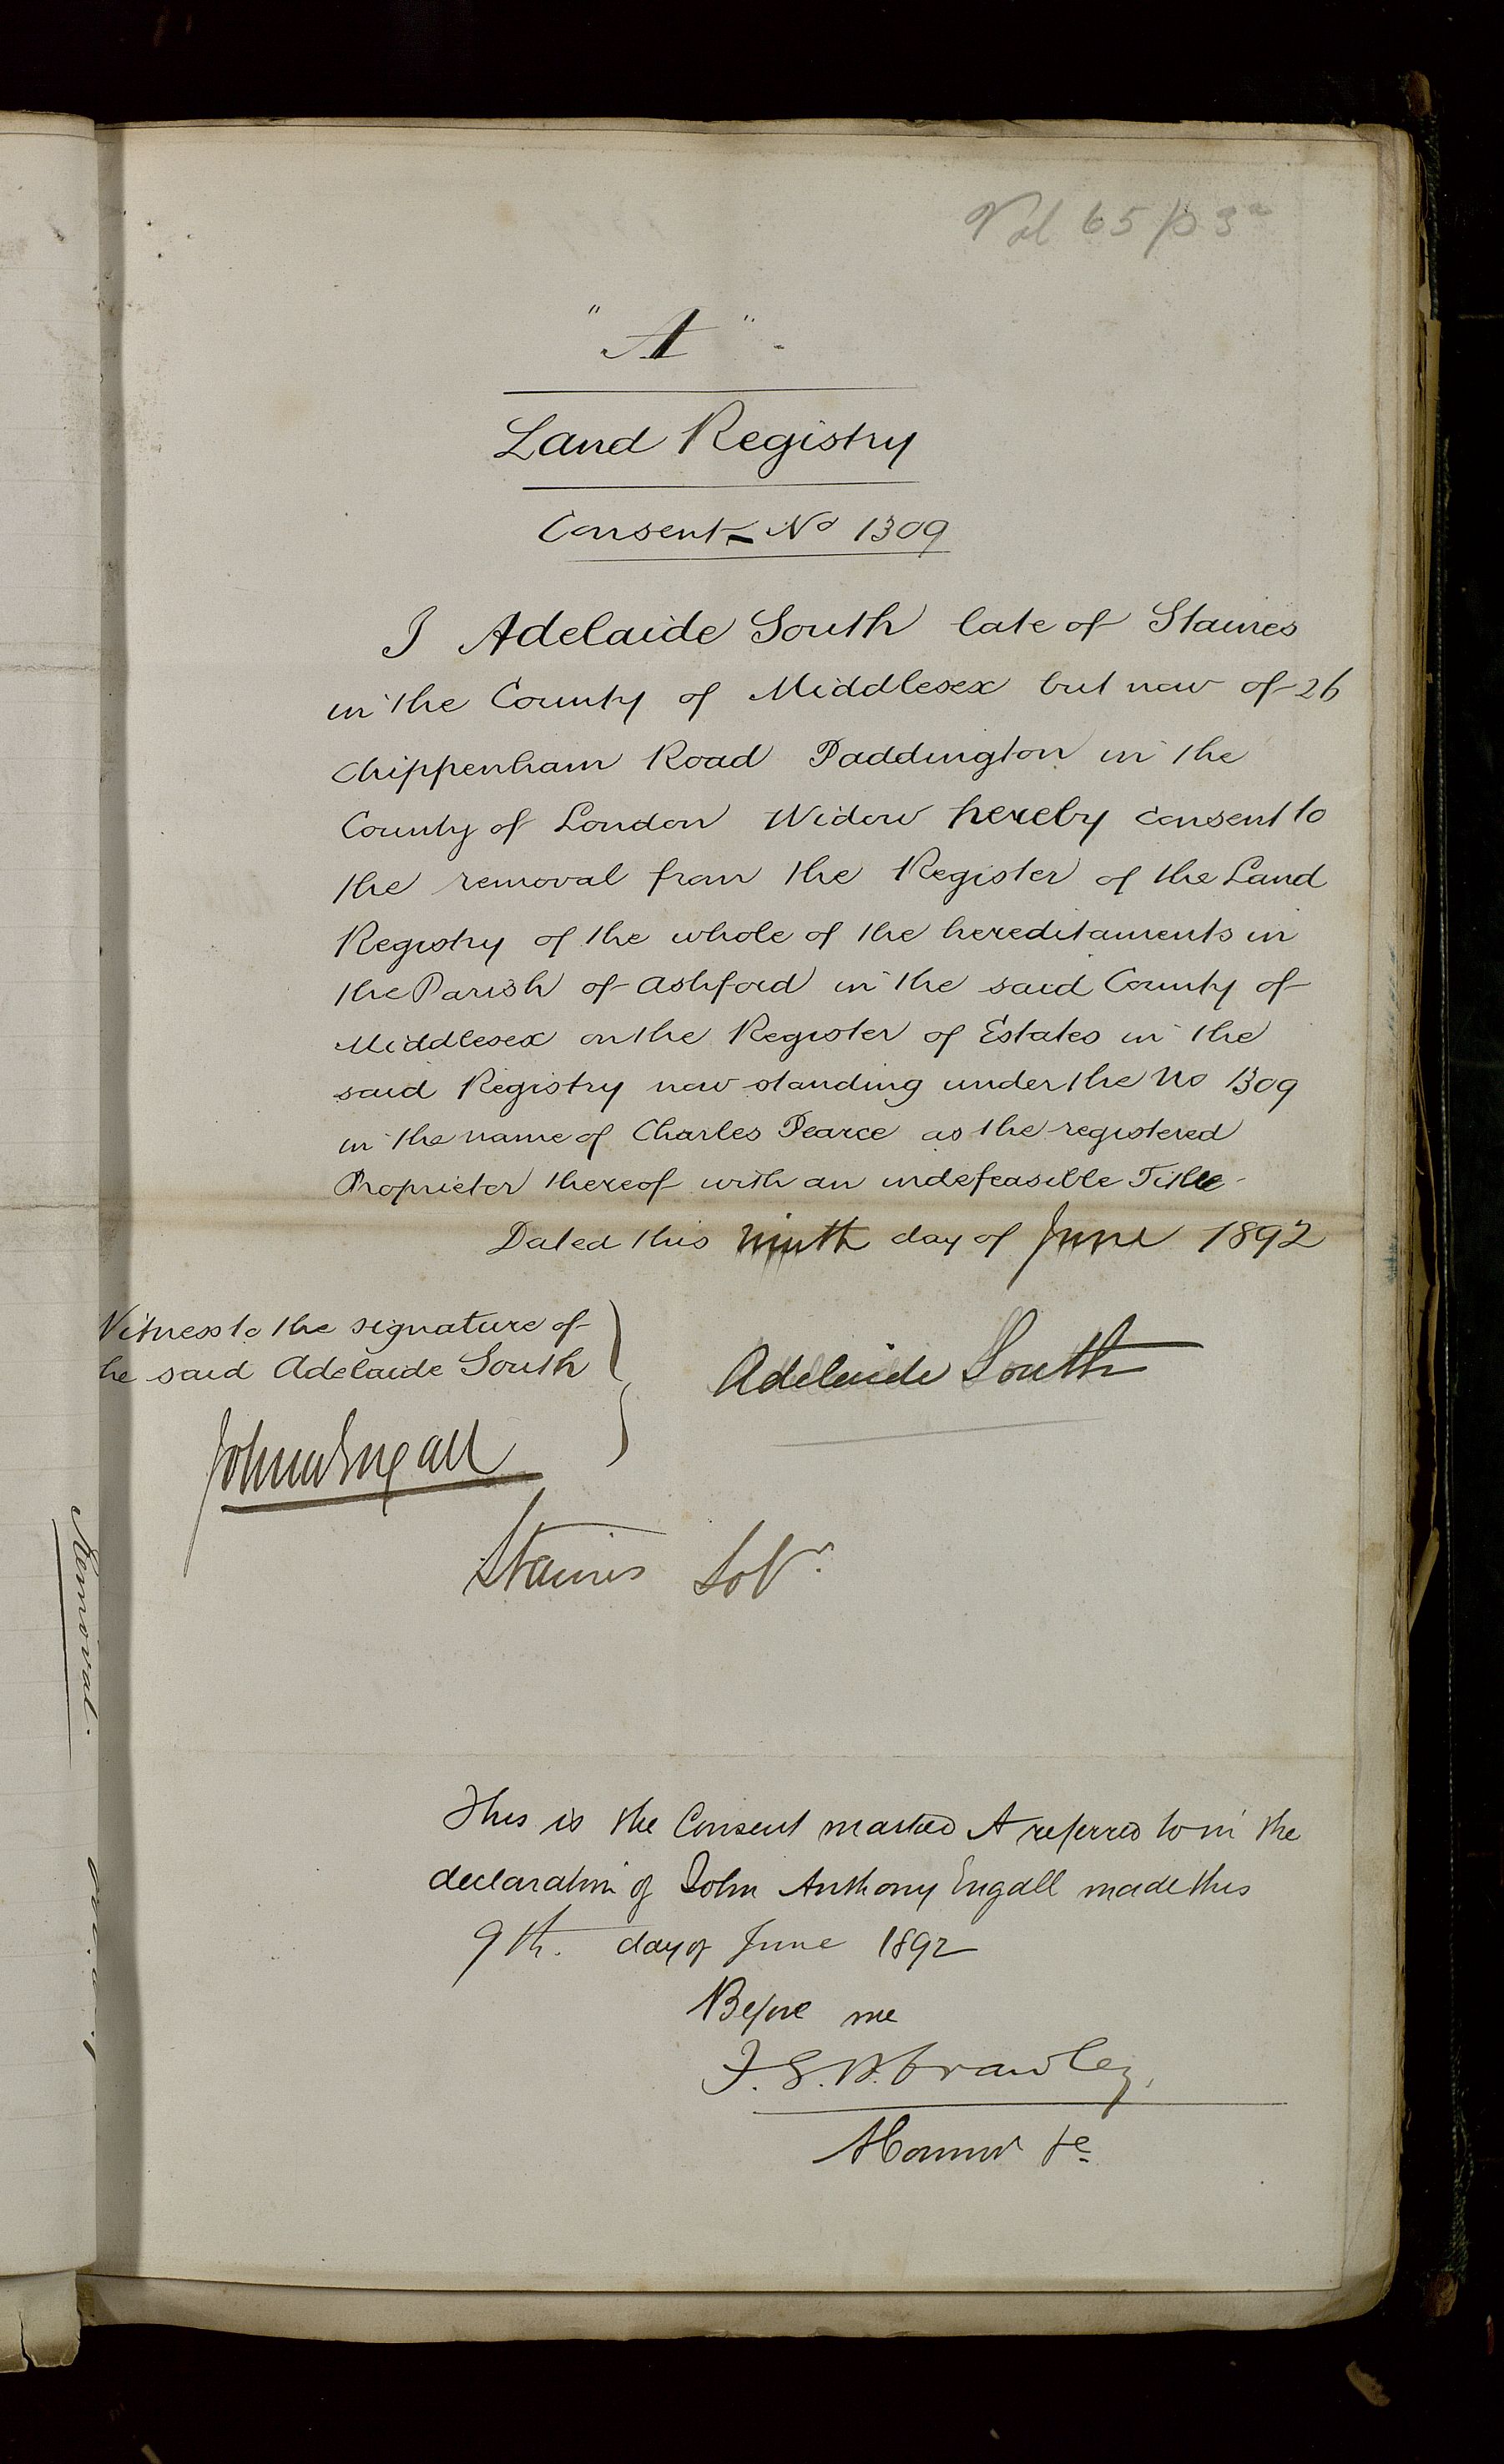 Vol 65 p 3
"A".
Land Registry
Consent - No 1309
I Adelaide South late of Staines
in the County of Middlesex but now of 26
Chippenham Road Paddington in the
County of London Widow hereby consent to
the removal from the Register of the Land
Registry of the whole of the hereditaments in
the Parish of Ashford in the said County of
Middlesex on the Register of Estates in the
said Registry now standing under the No 1309
in the name of Charles Pearce as the registered
Proprietor thereof with an indefeasible Title -
Dated this ninth day of June 1892
Witness to the signature of
he said Adelaide South
Adelaide South
John A Engall
Staines Solr.
This is the Consent marked A referred to in the
declaration of John Anthony Engall made this
9th. day of June 1892
Before me
Crawley,
Removal.